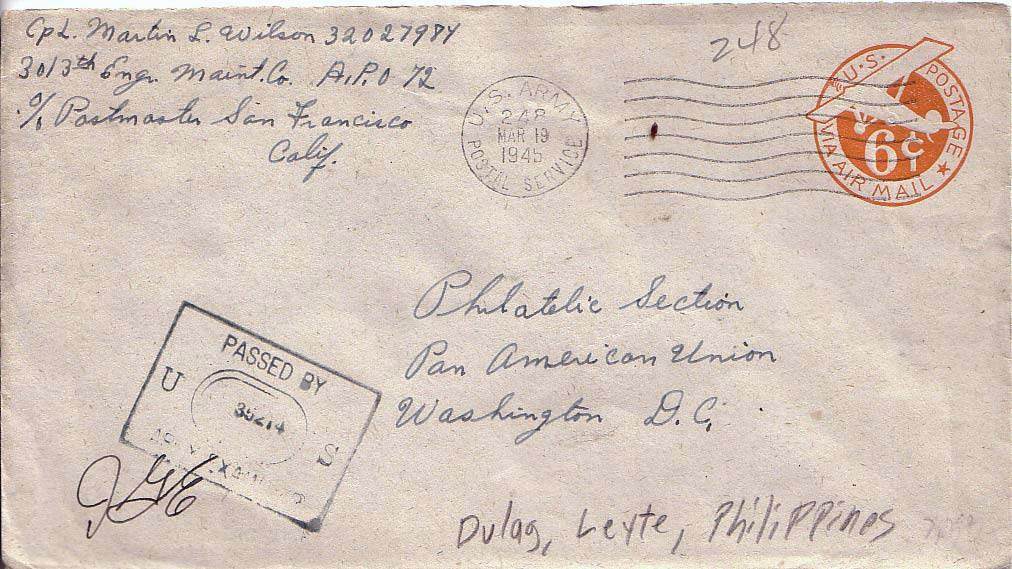 Cpl. Martin L. Wilson 32027984
3013th Engr. Maint. Co. A.P.O 72
c/o Postmaster San Francisco
Calif.
248
U.S. ARMY
248
MAR 19
1945
POSTAL SERVICE
U.S. POSTAGE
6¢
VIA AIR MAIL
Philatelic Section
Pan American Union
Washington D.C.
PASSED BY
U 35214 S
JGE
Dulag, Leyte, Philippines